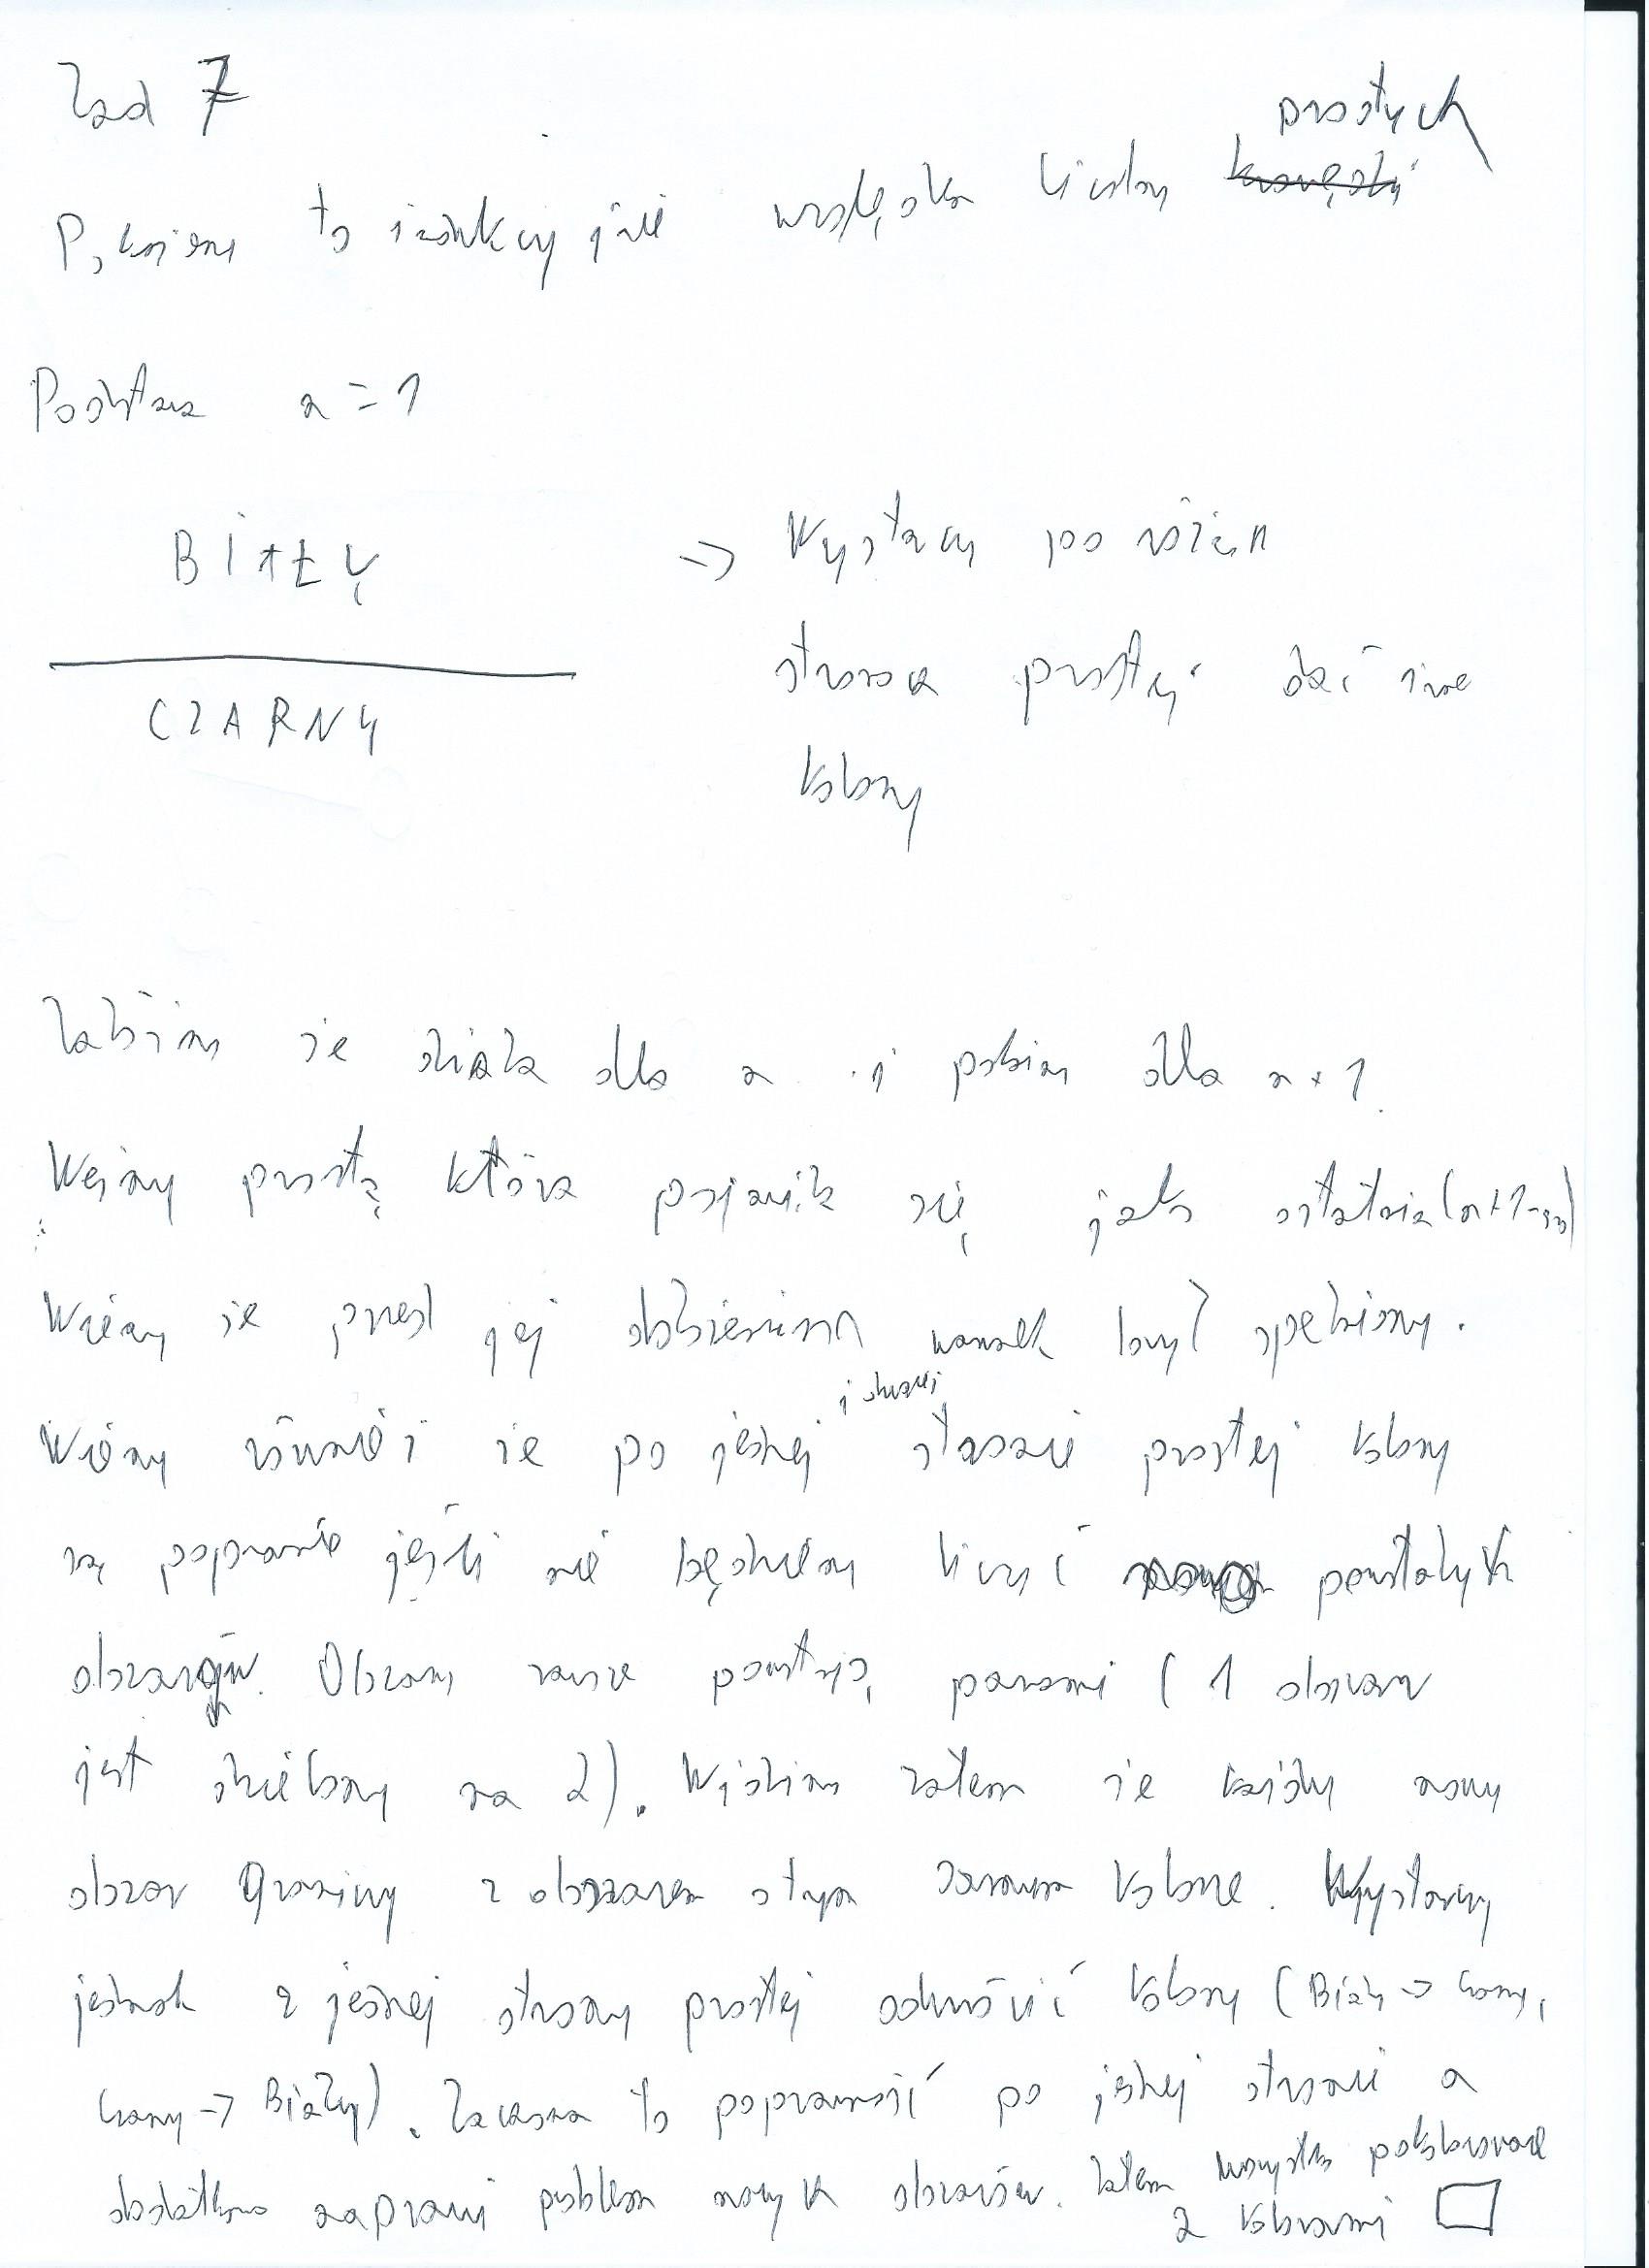 Zad 7
Pokażemy to indukcyjnie względem liczby krawędzi prostych
Podstawa n = 1
BIAŁY
CZARNY
→ Wystarczy po różnych
stronach prostej dać inne
kolory
Załóżmy że działa dla n i pokażmy dla n + 1.
Weźmy prostą która pojawiła się jako ostatnia (n+1-sza)
Wiemy że przed jej dołożeniem warunek był spełniony.
Wiemy również że po jednej i drugiej stronie prostej kolory
są poprawnie jeśli nie będziemy liczyć powstałych
obszarów. Obszary zawsze powstają parami (1 obszar
jest dzielony na 2). Widzimy zatem że każdy nowy
obszar graniczy z obszarem o tym samym kolorze. Wystarczy
jednak z jednej strony prostej odwrócić kolory (Biały → Czarny,
Czarny → Biały). Zachowa to poprawność po jednej stronie a
dodatkowo naprawi problem nowych obszarów. Zatem wszystko pokolorowane
2 kolorami □